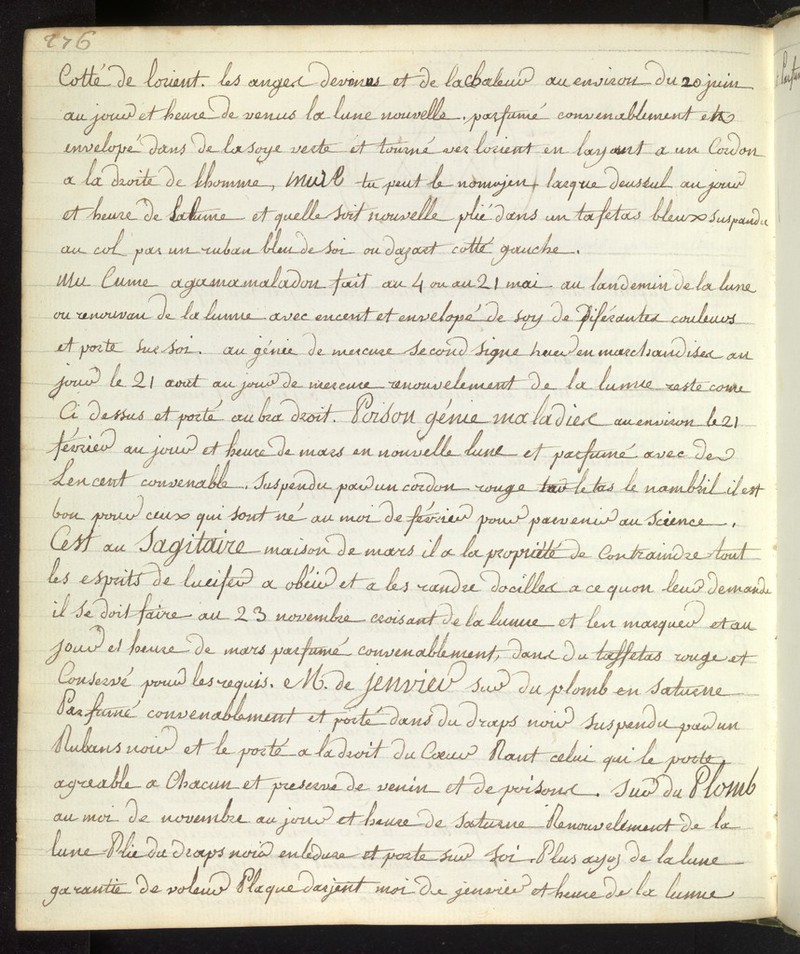 276
Cotté de lorient. les anges devenus et de la chaleur au environ du 20 juin
au jour et heure de venus la lune nouvelle. parfumé convenablement et
envelopé dans de la soye verte et tourné ver lorient en layant a un Cordon
a la droite de lhomme, tu peut le laque deuseul au jour
et heure de la lune et quelle soit nouvelle plié dans un tafetas bleux suspandu
au col par un ruban bleu de soi ou dazart cotté gauche.
Mu Cume agamamaladon fait au 4 ou au 21 mai au landemin de la lune
ou renouvau de la lunne avec encent et envelopé de soy de diférantes couleurs
et porté sur soi. au génie de mercure second signe heur en marchandises au
jour le 21 aout au jour de mercure renouvelement de la lunne reste come
Ci dessus et porté au bra droit. Poison génie maladies au environ le 21
février au jour et heure de mars en nouvelle lune et parfumé avec de
Lencent convenable. suspendu par un cordon rouge le tas le nambril il est
bon pour ceux qui sont né au moi de février pour parvenir au Science.
Cest au Sagitaire maison de mars il a la propriété de contraindre tout
les esprits de lucifer a obéir et a les randre dociller a ce quon leur demande
il se doit faire au 23 novembre croisant de la lunne et len marquer et au
jour et heure de mars parfumé convenablement, dans du taffetas rouge et
Conservé pour les requis. M. de jenvier sur du plomb en saturne
Parfumé convenablement et porté dans du draps noir suspendu par un
Rubans noir et le porté a la droit du Cœur Rant celui qui le porte
agreable a Chacun et preserve de venin et de poisons. Sur du Plomb
au moi de novembre au jour et heure de saturne Renouvelement de la
lune Plie du draps noir en ledure et porte sur soi. Plus de la lune
garantie de voleur Plaque darjent moi de jenvier et heure de la lunne